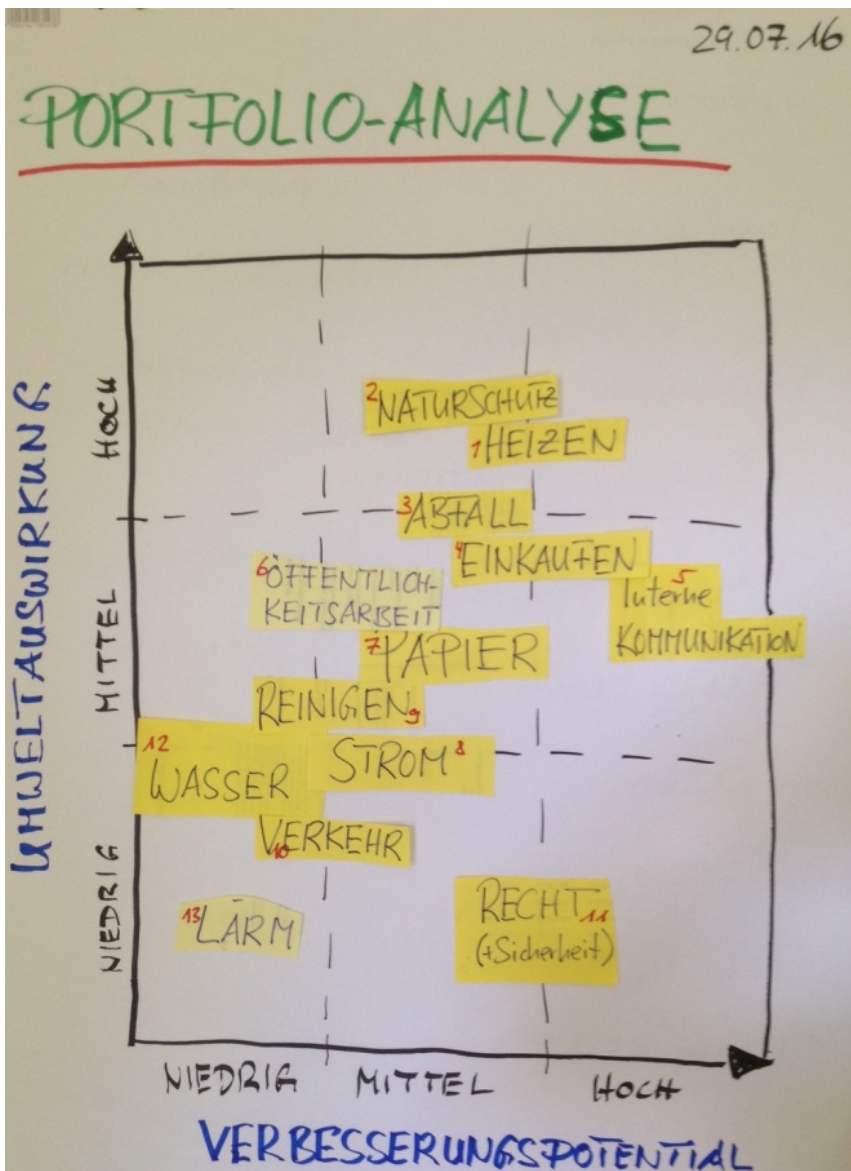 29.07.16
PORTFOLIO-ANALYSE
UMWELTAUSWIRKUNG
HOCH
MITTEL
NIEDRIG
2 NATURSCHUTZ
1 HEIZEN
3 ABFALL
4 EINKAUFEN
5
Interne
KOMMUNIKATION
6 ÖFFENTLICH-
KEITSARBEIT
7 PAPIER
REINIGEN 9
STROM 8
12
WASSER
VERKEHR
10
13 LÄRM
RECHT 11
(+Sicherheit)
NIEDRIG MITTEL HOCH
VERBESSERUNGSPOTENTIAL